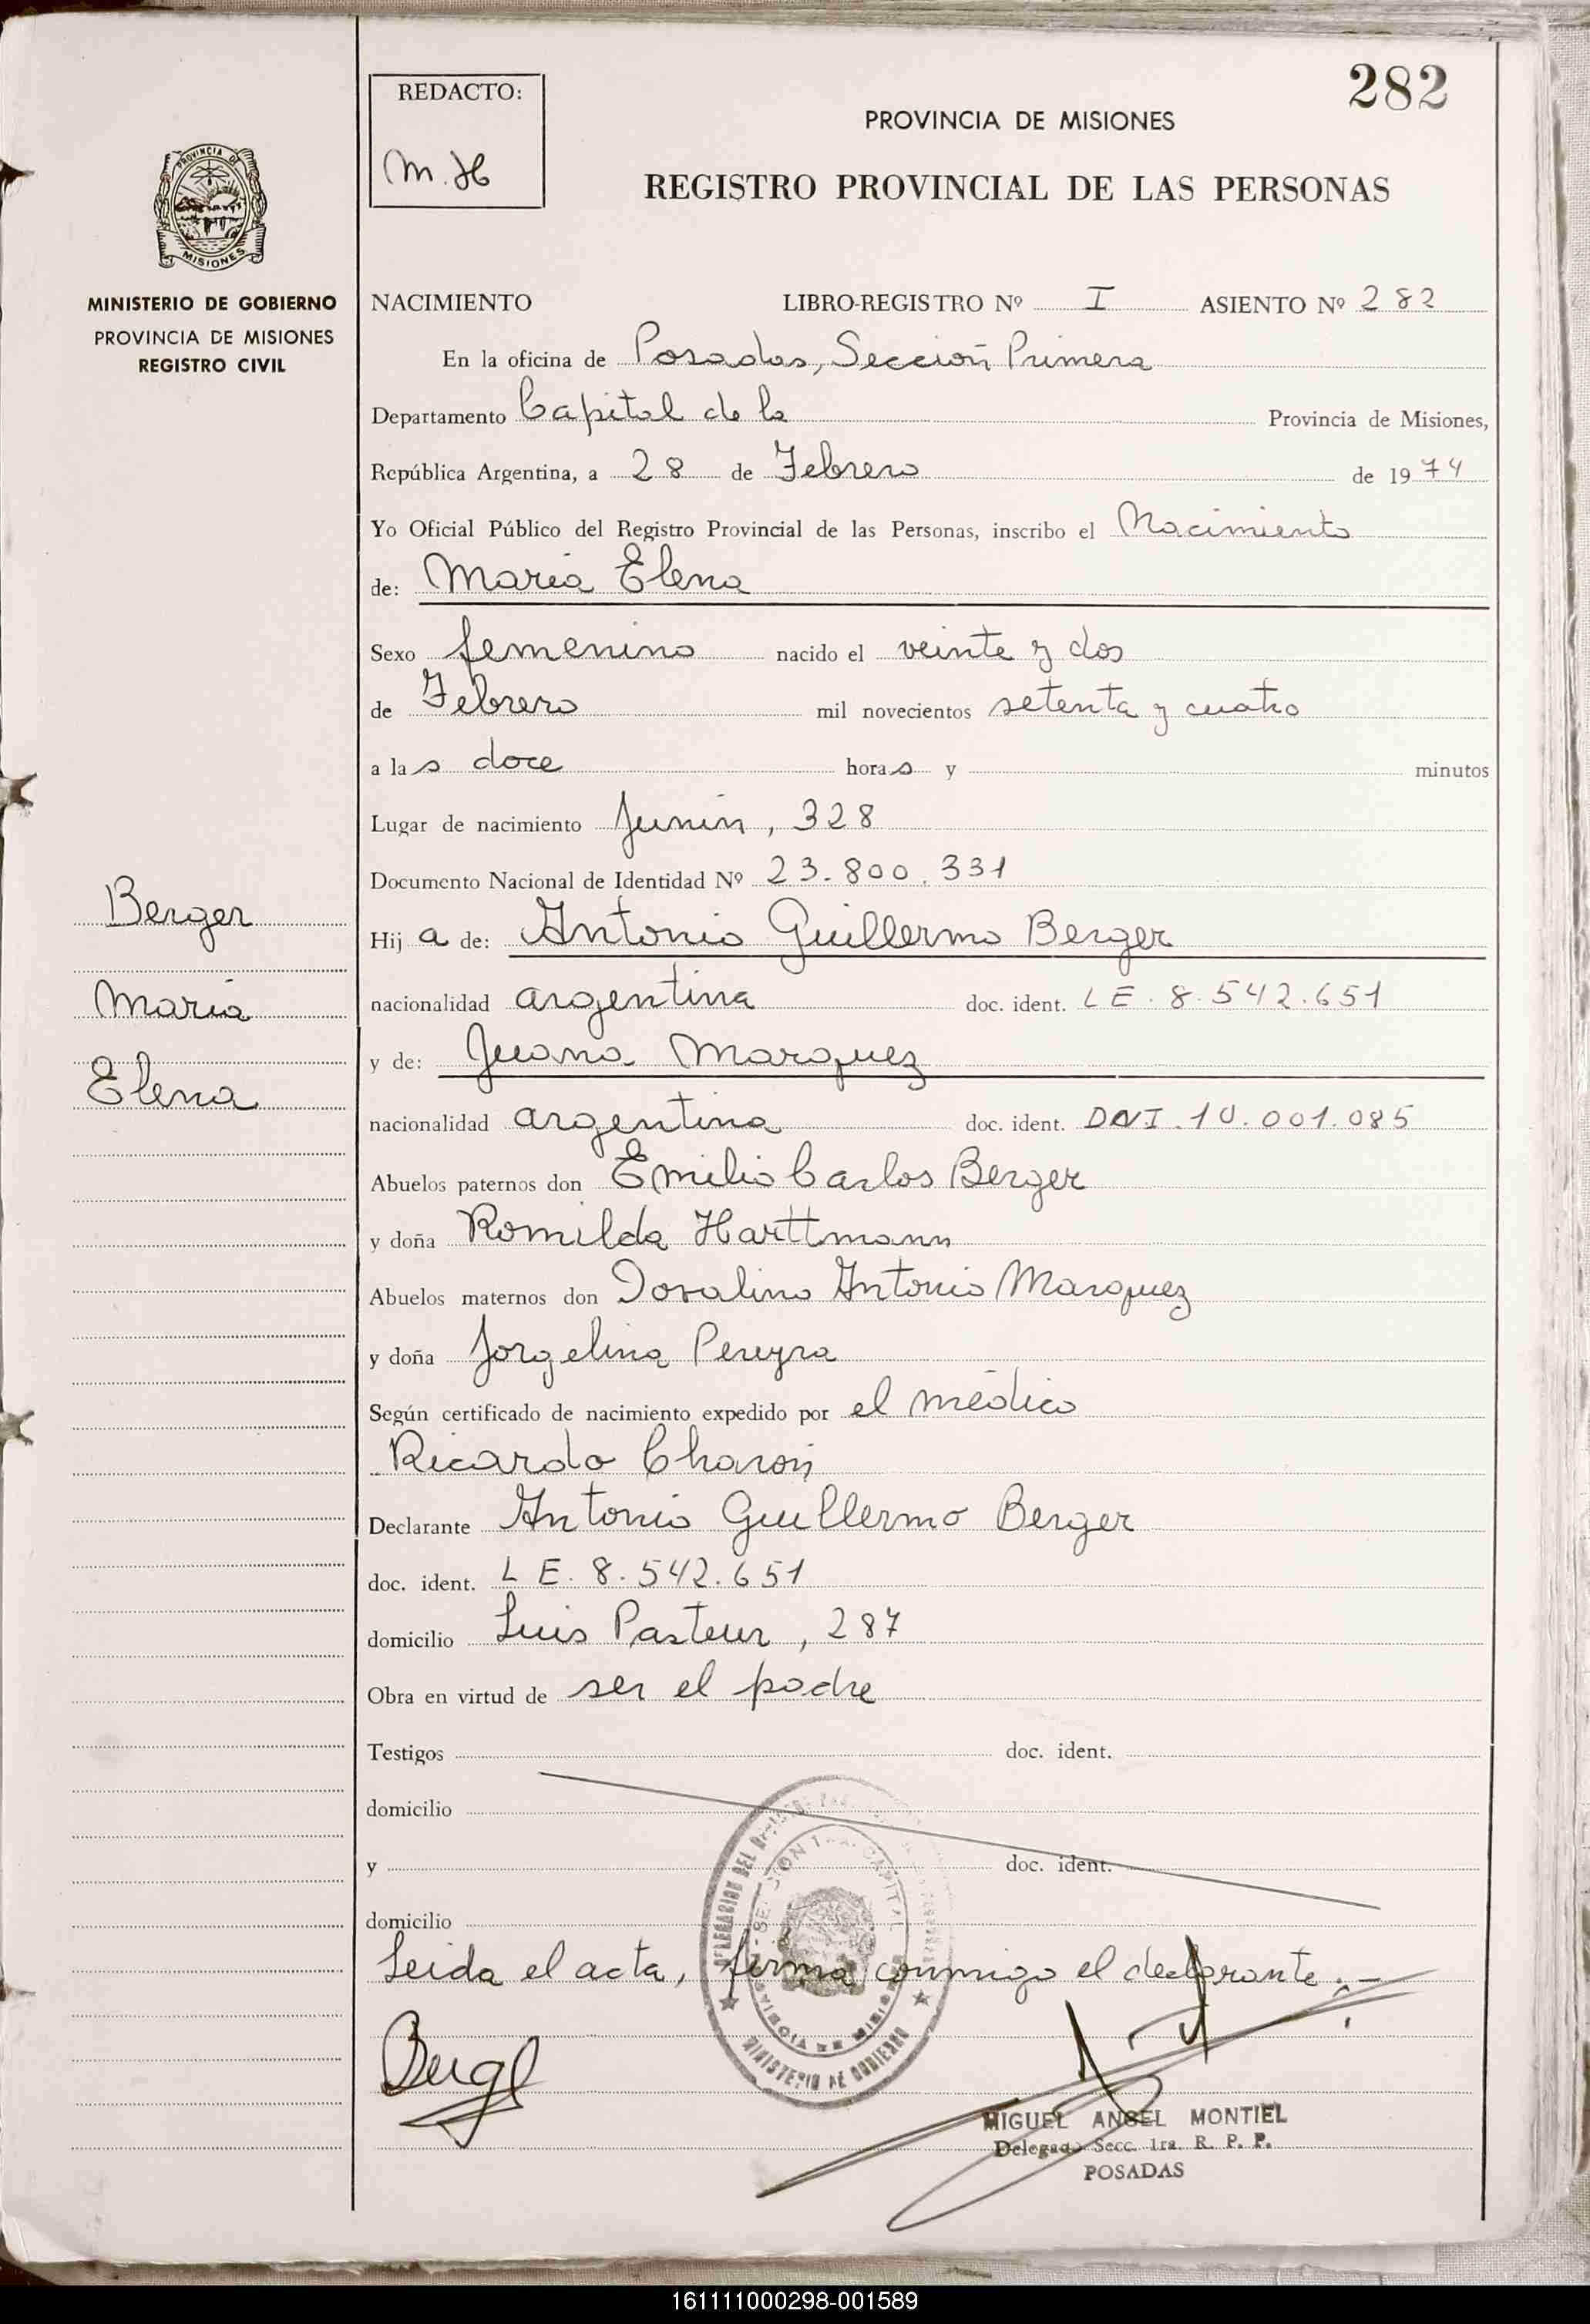 282
REDACTO:
M. H
PROVINCIA DE MISIONES
REGISTRO PROVINCIAL DE LAS PERSONAS
PROVINCIA DE
MISIONES
MINISTERIO DE GOBIERNO
PROVINCIA DE MISIONES
REGISTRO CIVIL
NACIMIENTO LIBRO-REGISTRO Nº I ASIENTO Nº 282
En la oficina de Posadas, Sección Primera
Departamento Capital de la Provincia de Misiones,
República Argentina, a 28 de Febrero de 1974
Yo Oficial Público del Registro Provincial de las Personas, inscribo el Nacimiento
de: María Elena
Sexo femenino nacido el veinte y dos
de Febrero mil novecientos setenta y cuatro
a las doce horas y minutos
Lugar de nacimiento Junín, 328
Documento Nacional de Identidad Nº 23.800.331
Berger
Hija de: Antonio Guillermo Berger
María
nacionalidad argentina doc. ident. LE. 8.542.651
y de: Juana Marquez
Elena
nacionalidad argentina doc. ident. DNI. 10.001.085
Abuelos paternos don Emilio Carlos Berger
y doña Romilda Harttmann
Abuelos maternos don Antonio Marquez
y doña Jorgelina Pereyra
Según certificado de nacimiento expedido por el médico
Ricardo
Declarante Antonio Guillermo Berger
doc. ident. LE. 8.542.651
domicilio Luis Pasteur, 287
Obra en virtud de ser el padre
Testigos doc. ident.
domicilio
y doc. ident.
domicilio
Leida el acta, firma conmigo el declarante.-
MINISTERIO DE GOBIERNO
MIGUEL ANGEL MONTIEL
Delegado Secc. 1ra. R. P. P.
POSADAS
161111000298-001589